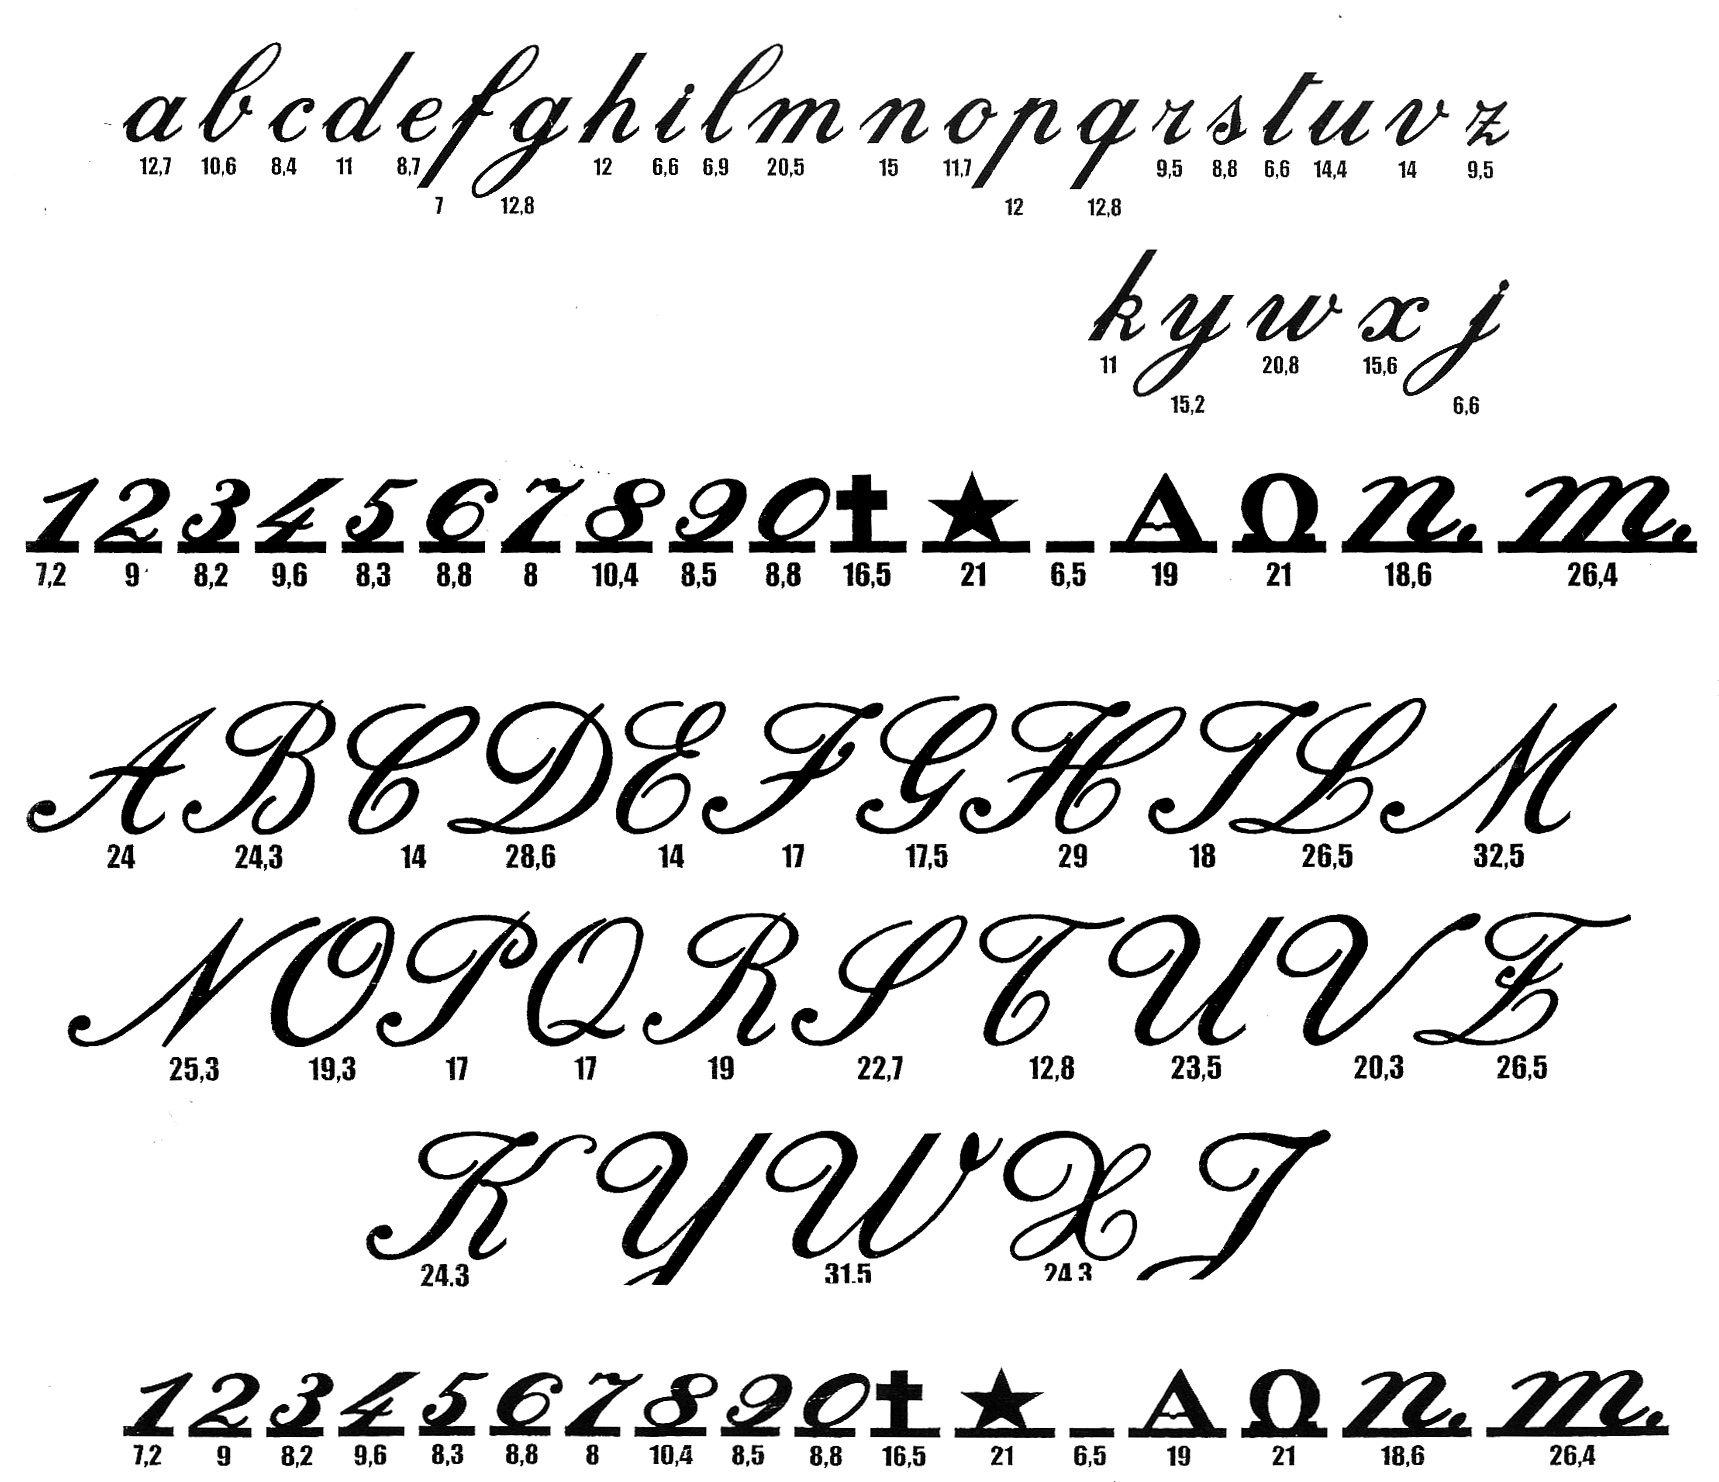 a b c d e f g h i l m n o p q r s t u v z
12,7 10,6 8,4 11 8,7 12 6,6 6,9 20,5 15 11,7 9,5 8,8 6,6 14,4 14 9,5
7 12,8 12 12,8
k y w x j
11 20,8 15,6
15,2 6,6
1 2 3 4 5 6 7 8 9 0 ✝ ★ _ A Ω n. m.
7,2 9 8,2 9,6 8,3 8,8 8 10,4 8,5 8,8 16,5 21 6,5 19 21 18,6 26,4
A B C D E F G H I L M
24 24,3 14 28,6 14 17 17,5 29 18 26,5 32,5
N O P Q R S T U V Z
25,3 19,3 17 17 19 22,7 12,8 23,5 20,3 26,5
K Y W X J
24,3 31,5 24,3
1 2 3 4 5 6 7 8 9 0 ✝ ★ _ A Ω n. m.
7,2 9 8,2 9,6 8,3 8,8 8 10,4 8,5 8,8 16,5 21 6,5 19 21 18,6 26,4